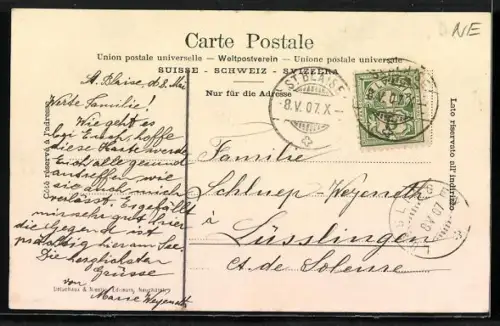 NE
Carte Postale
Union postale universelle — Weltpostverein — Unione postale universale
SUISSE - SCHWEIZ - SVIZZERA
Nur für die Adresse
Côté réservé à l'adresse
Lato riservato all'indirizzo
ST. BLAISE
8.V.07.X
8.V.07
St. Blaise, d. 8. Mai
Werte Familie!
Wie geht es
bei Euch, hoffe
diese Karte werde
Euch alle gesund
antreffen wie
sie auch mich
verlässt. Es gefällt
mir sehr gut hier
die Gegend ist
hier am See.
Die herzlichsten
Grüsse
von
Marie Weyeneth
Familie
Schluep-Weyeneth
à
Lüsslingen
Ct. de Soleure
8.V.07